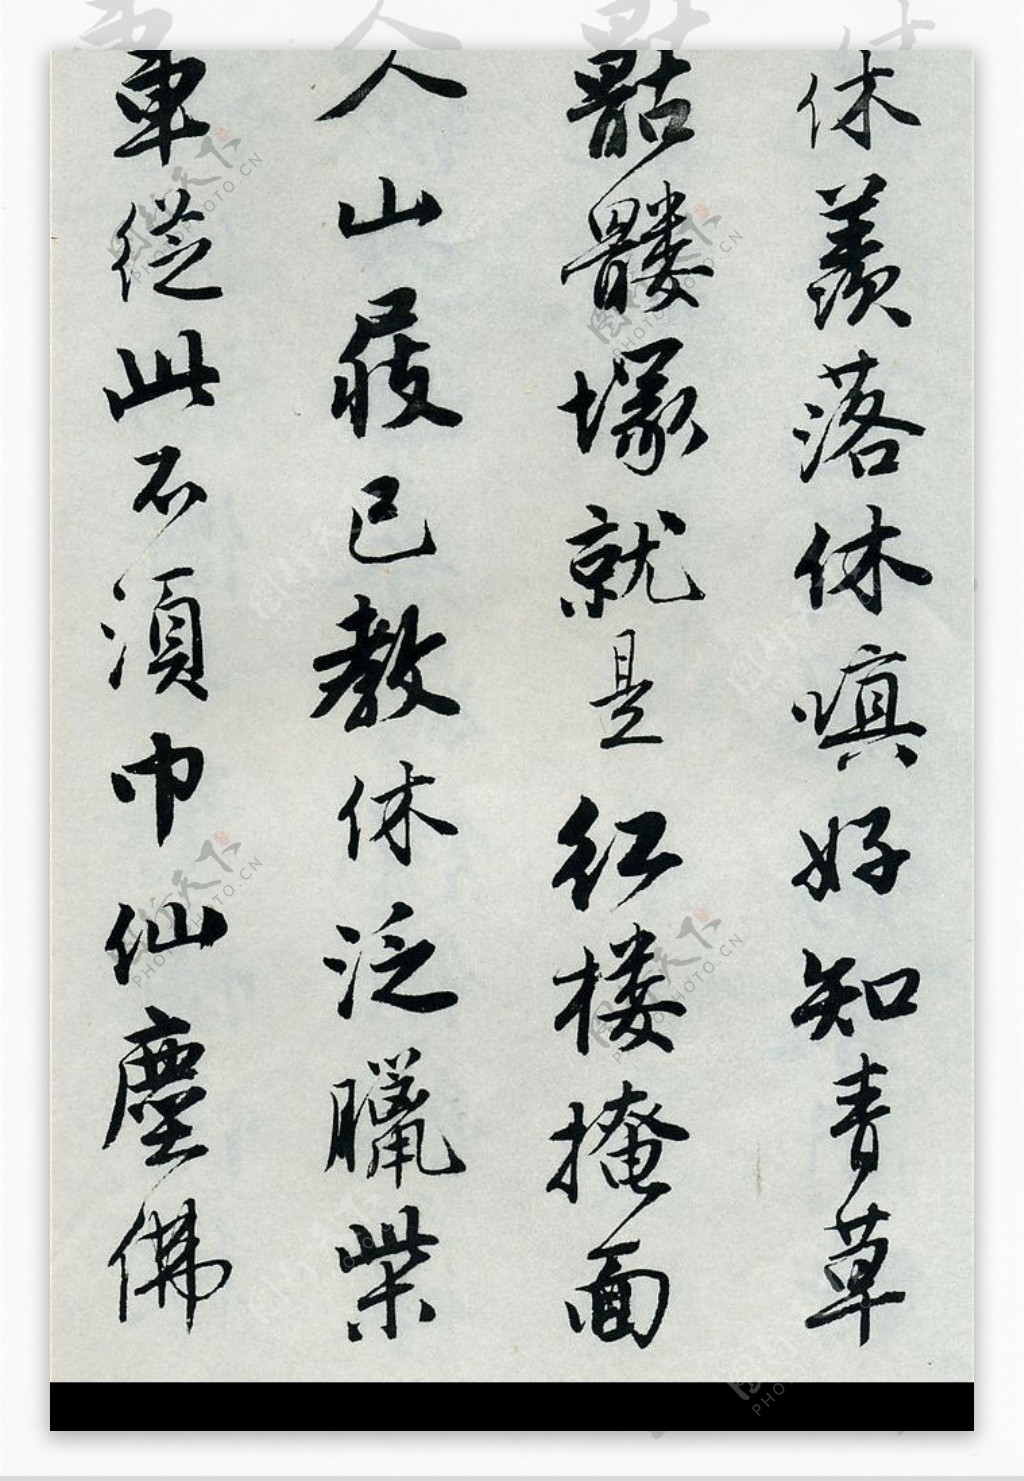 休羨落休嗔好知青草
骷髏塚就是红楼掩面
人山屐已教休泛臘柴
車從此不須巾仙塵佛